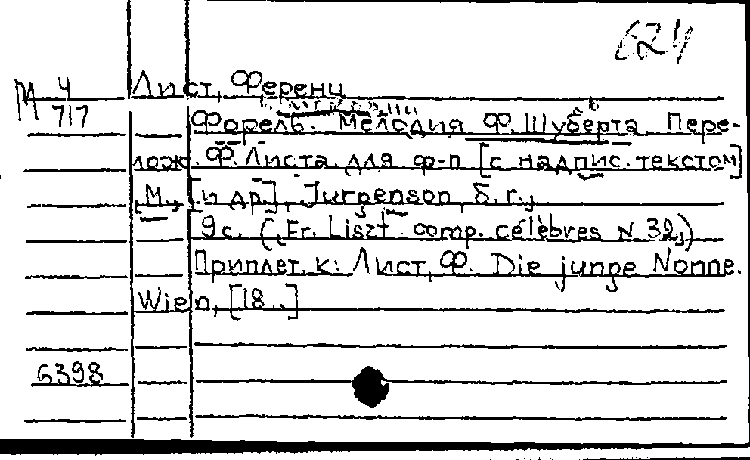 624
М 4
717
Лист, Ференц
Форель. Мелодия Ф. Шуберта. Пере-
лож. Ф. Листа для ф-п [с надпис. текстом]
М., [и др.], Jurgenson, б. г.,
9 с. (Fr. Liszt comp. célèbres N 32,)
Приплет. к: Лист, Ф. Die junge Nonne.
Wien, [18..]
6398